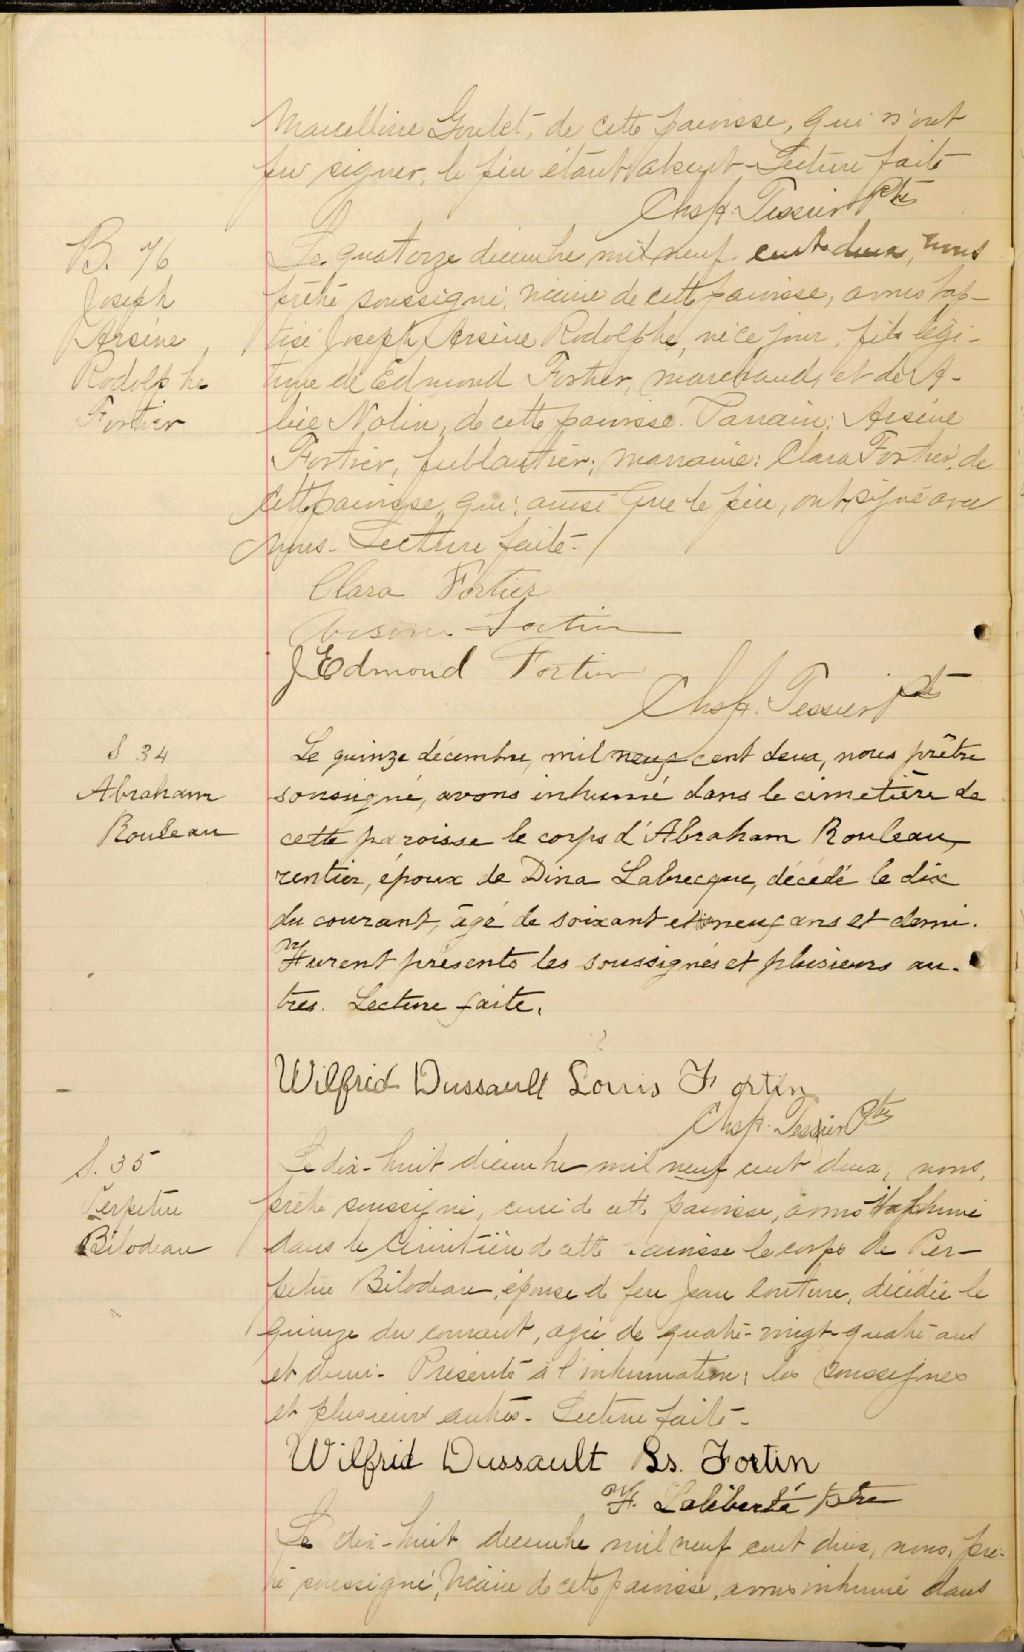 Marcelline Goulet, de cette paroisse, qui n'ont
pu signer, le père étant absent - Lecture faite
Chs H. Tessier Ptre
B. 76
Joseph
Arsène
Rodolphe
Fortier
Le quatorze décembre mil neuf cent deux, nous
prêtre soussigné, vicaire de cette paroisse, avons bap-
tisé Joseph Arsène Rodolphe, né ce jour, fils légi-
time de Edmond Fortier, marchand, et de A-
Nolin, de cette paroisse. Parrain: Arsène
Fortier, ferblantier; marraine: Clara Fortier, de
cette paroisse, qui, ainsi que le père, ont signé avec
nous - Lecture faite -
Clara Fortier
Fortier
J Edmond Fortier
Chs H. Tessier Ptre
S 34
Abraham
Rouleau
Le quinze décembre, mil neuf cent deux, nous prêtre
soussigné, avons inhumé dans le cimetière de
cette paroisse le corps d'Abraham Rouleau,
rentier, époux de Dina Labrecque, décédé le dix
du courant, âgé de soixant et neuf ans et demi.
Furent présents les soussignés et plusieurs au-
tres. Lecture faite.
Wilfrid Dussault Louis Fortin
Chs H. Tessier Ptre
S. 35
Perpétue
Bilodeau
Le dix-huit décembre mil neuf cent deux, nous,
prêtre soussigné, curé de cette paroisse, avons inhumé
dans le cimetière de cette paroisse le corps de Per-
pétue Bilodeau, épouse de feu Jean Couture, décédée le
quinze du courant, agée de quatre-vingt-quatre ans
et demi - Présents à l'inhumation: les soussignés
et plusieurs autres - Lecture faite -
Wilfrid Dussault Ls. Fortin
F. Laliberté ptre
Le dix-huit décembre mil neuf cent deux, nous, prê-
tre soussigné, vicaire de cette paroisse, avons inhumé dans